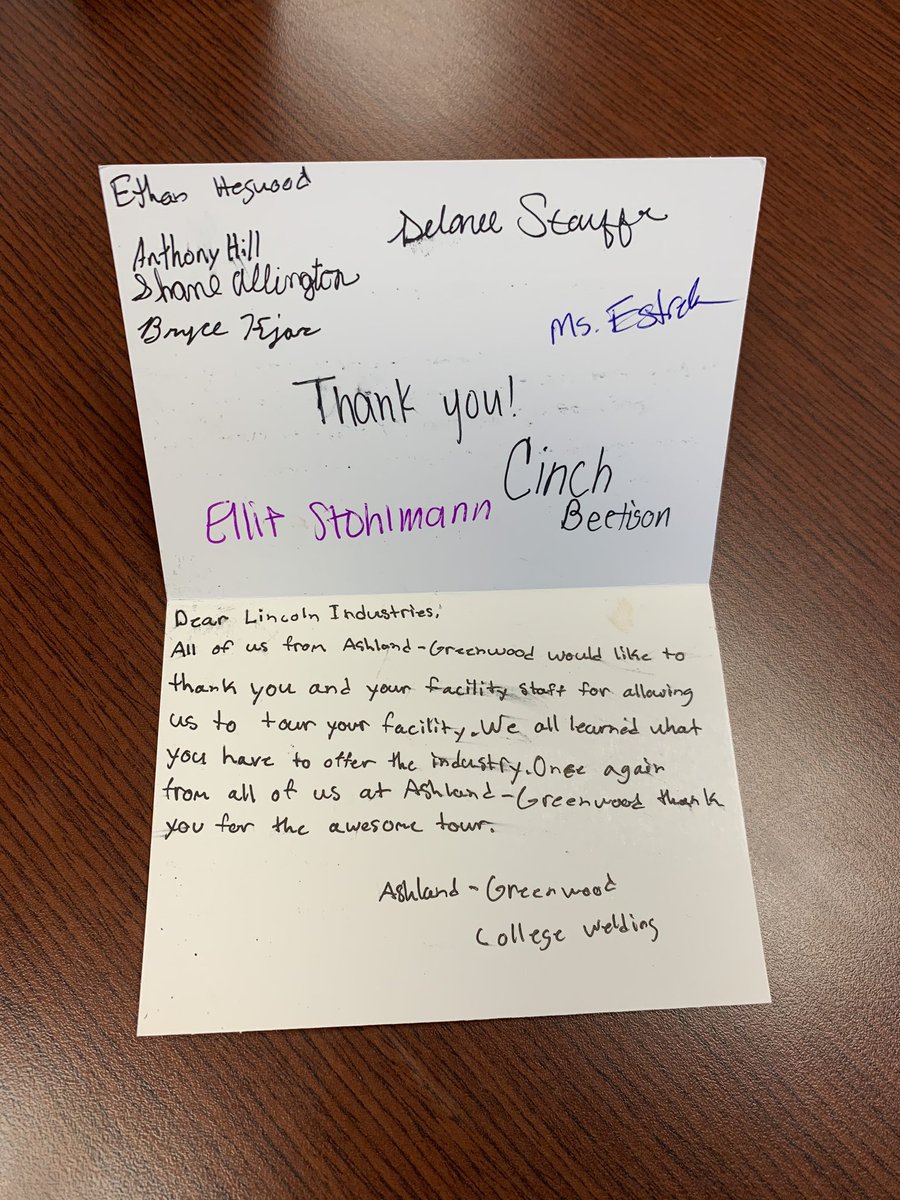 Ethan Hegwood
Delanee Stauffer
Anthony Hill
Shane Allington
Bryce Kjar
Ms.
Thank you!
Cinch
Beetison
Stohlmann
Dear Lincoln Industries,
All of us from Ashland-Greenwood would like to
thank you and your facility staff for allowing
us to tour your facility. We all learned what
you have to offer the industry. Once again
from all of us at Ashland-Greenwood thank
you for the awesome tour.
Ashland-Greenwood
College Welding